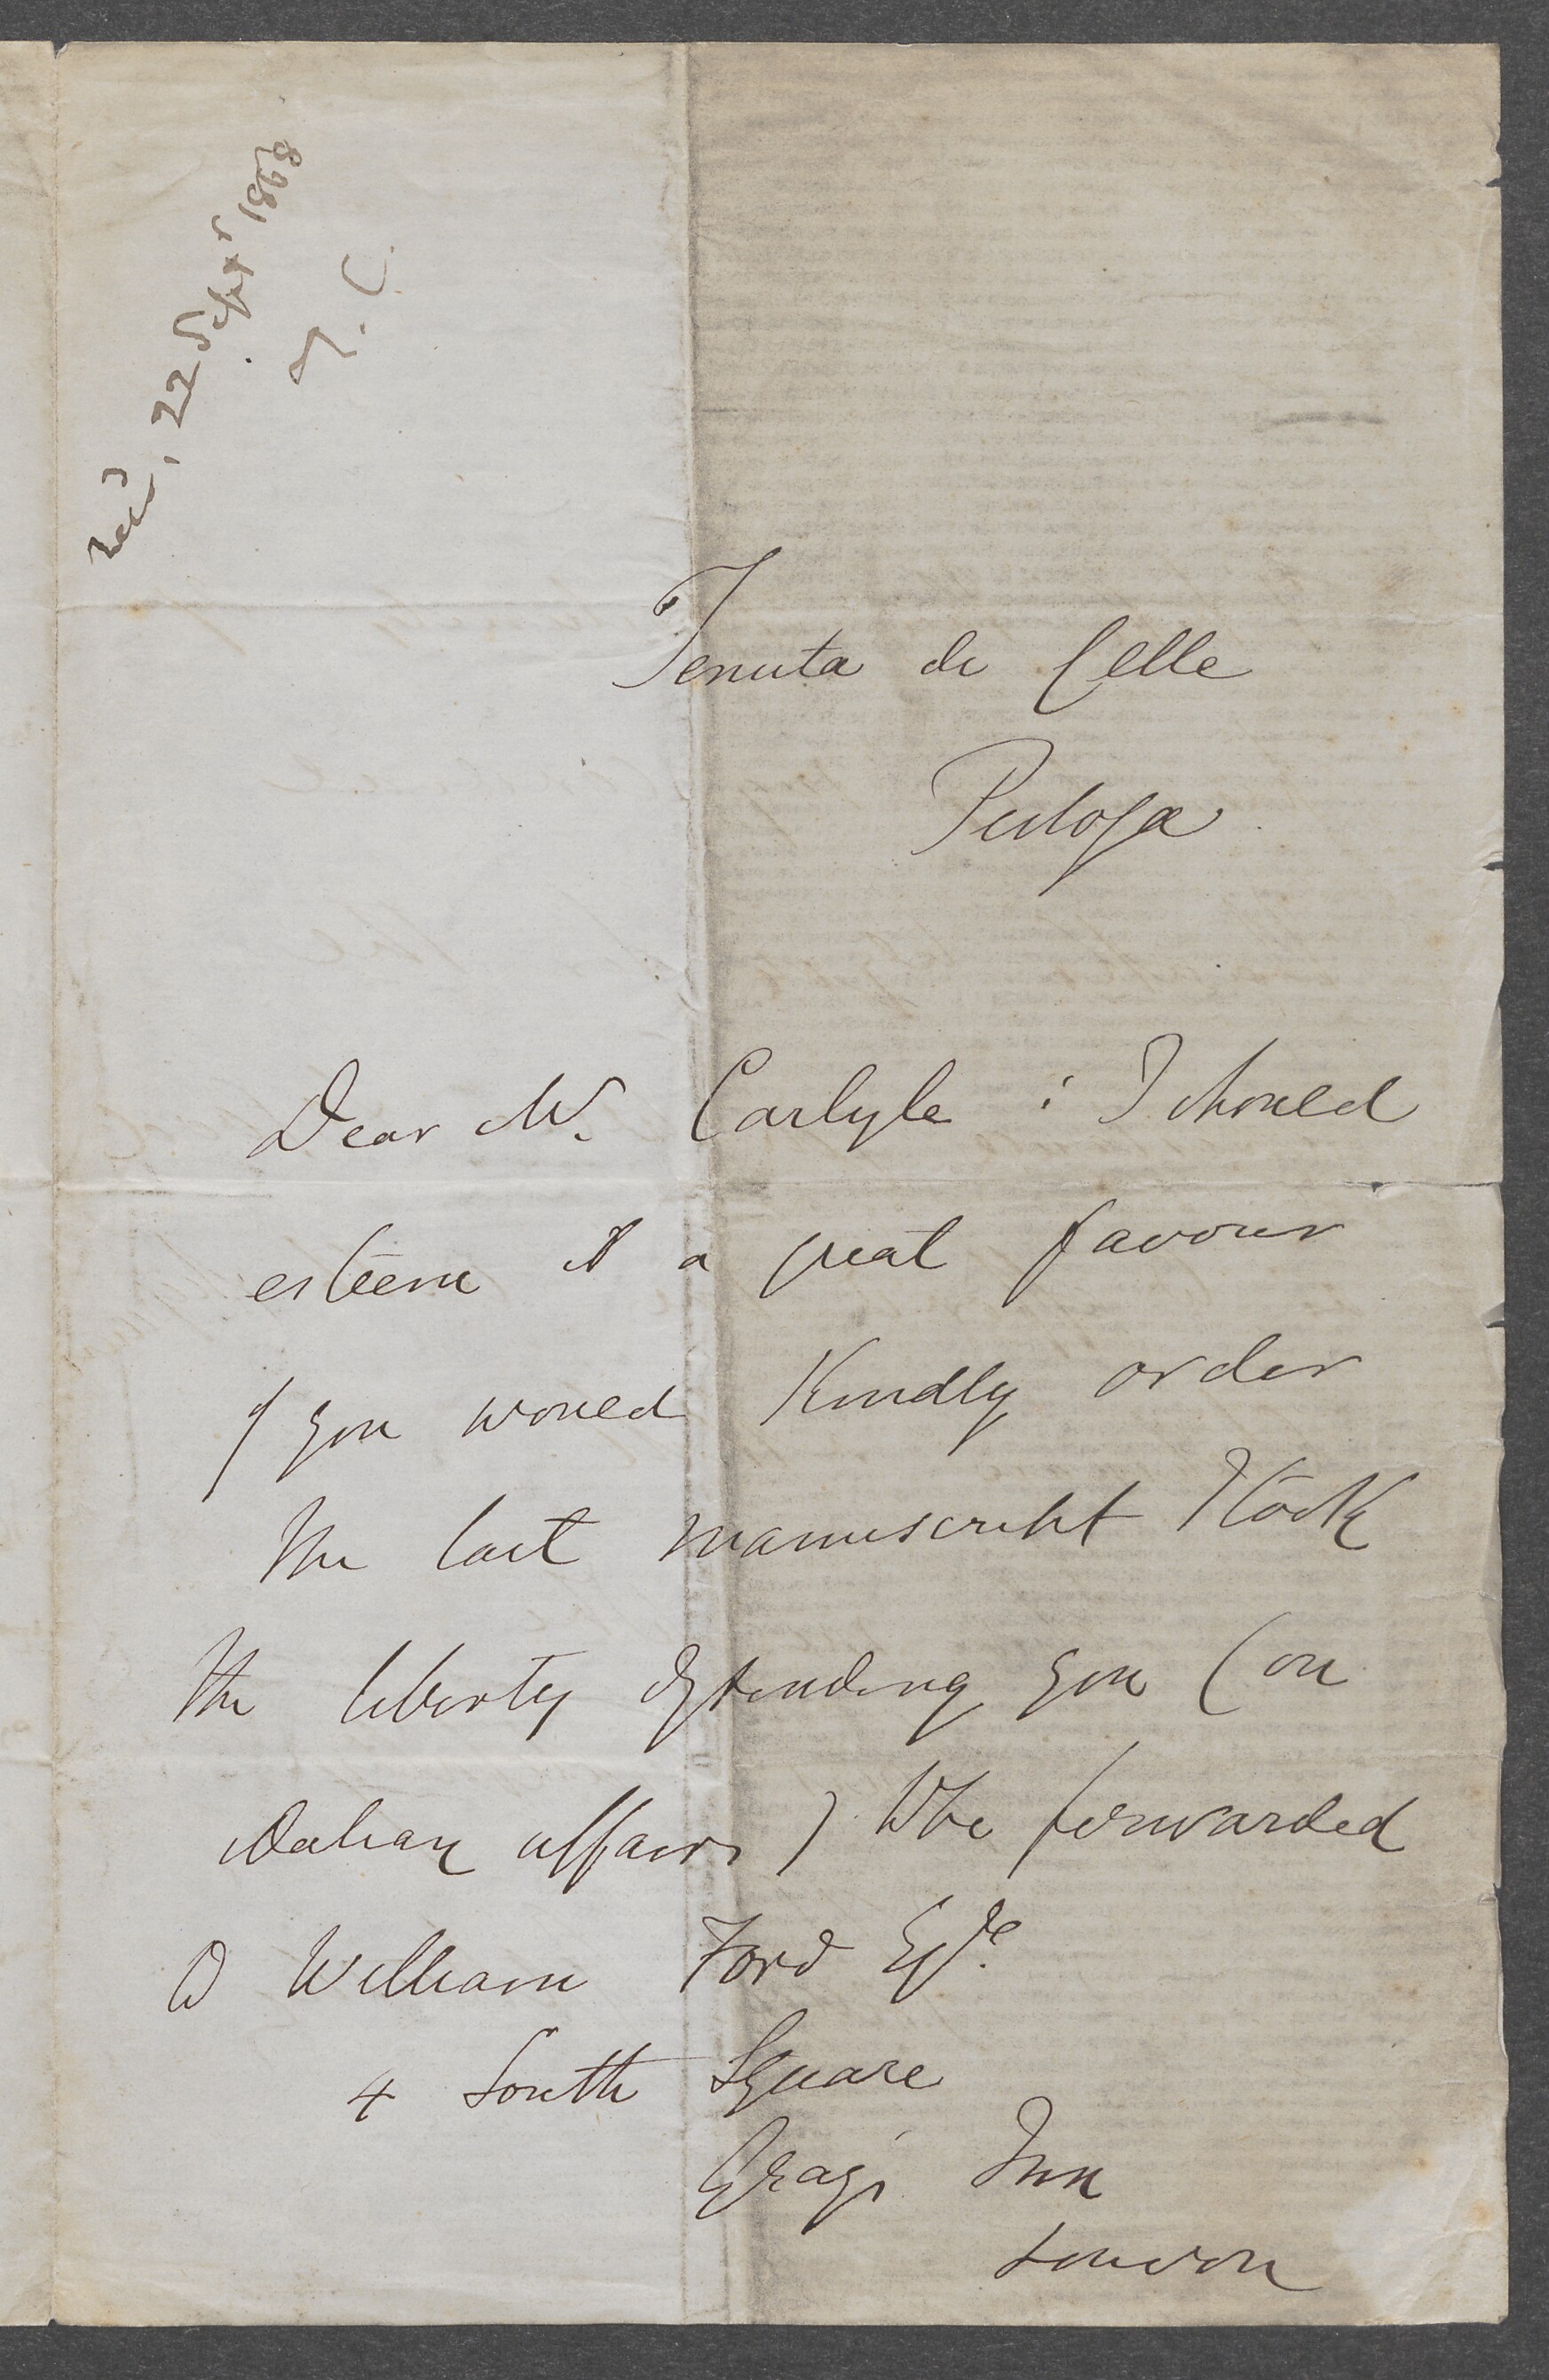 recd, 22 Septr, 1868
T. C.
Tenuta di Celle
Pistoja
Dear Mr. Carlyle : I should
esteem it a great favour
if you would Kindly order
the last manuscript I took
the liberty of sending you (on
Italian affairs) to be forwarded
to William Ford Esqre.
4 South Square
Gray's Inn
London